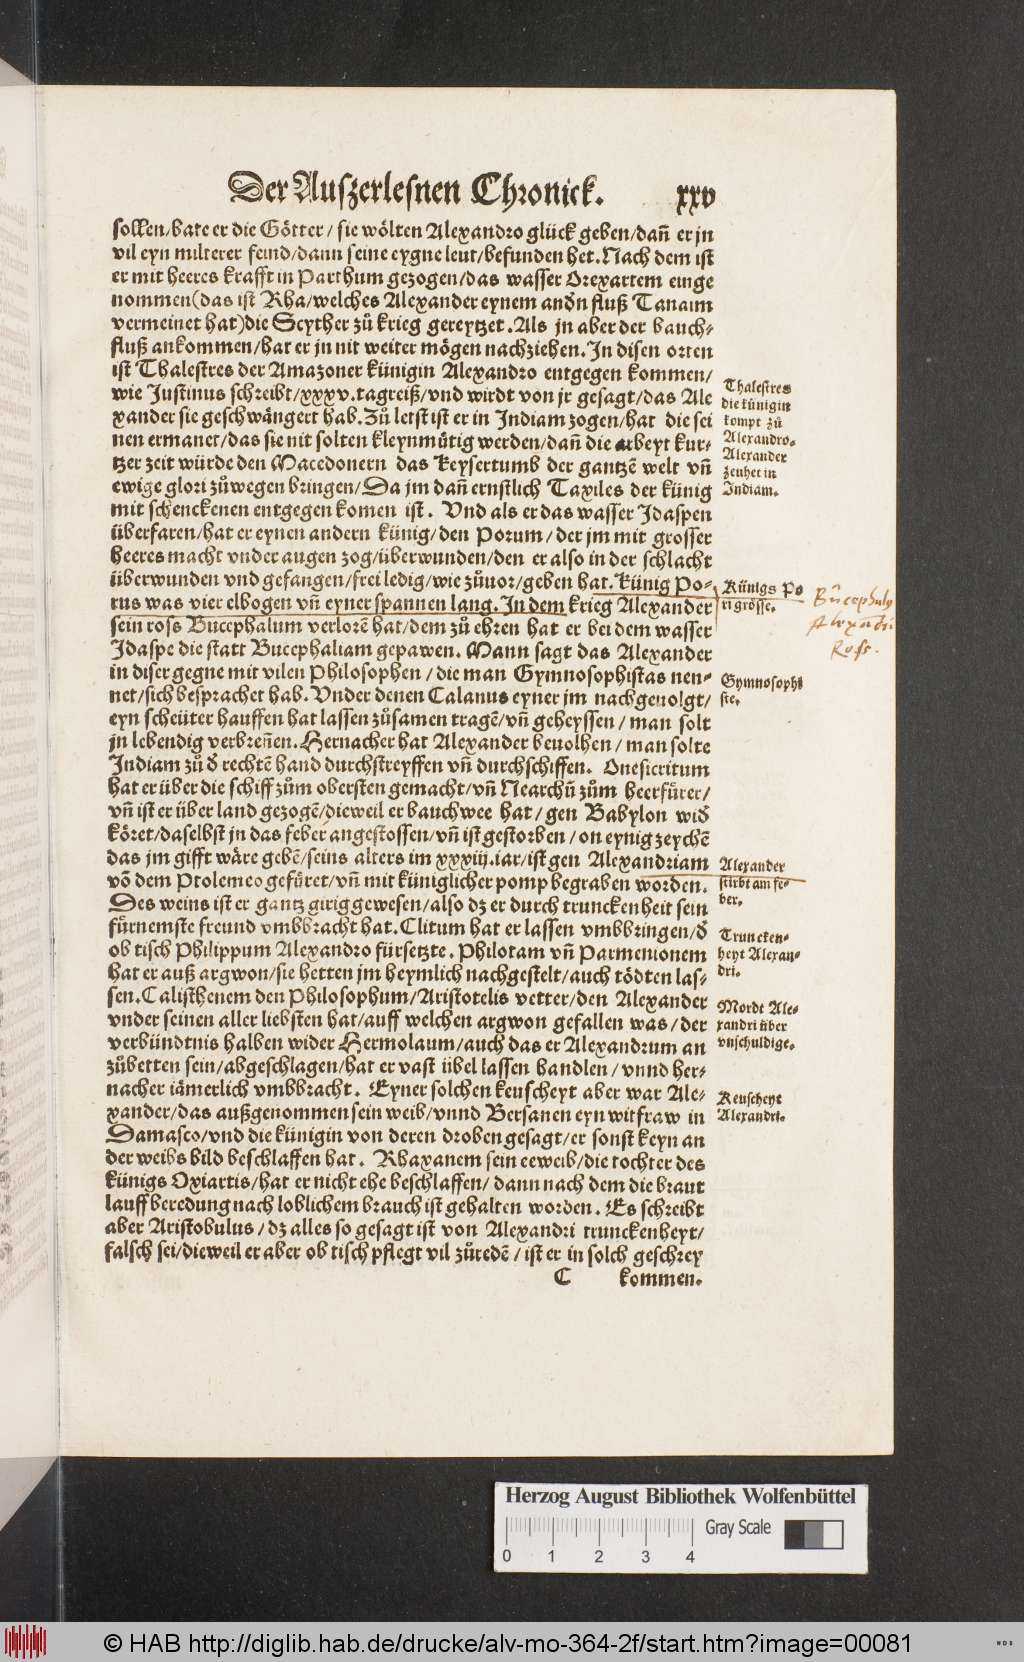 Der Auſzerleſnen Chronick. xxv
ſollen/bate er die Goͤtter/ſie woͤlten Alexandro gluͤck geben/dañ er jn
vil eyn milterer feind/dann ſeine eygne leut/befunden het. Nach dem iſt
er mit heeres krafft in Parthum gezogen/das waſſer Orexartem einge
nommen(das iſt Rha/welches Alexander eynem andn̄ fluß Tanaim
vermeinet hat)die Scyther zů krieg gereytzet. Als jn aber der bauch⸗
fluß ankommen/hat er jn nit weiter moͤgen nachziehen. In diſen orten
iſt Thaleſtres der Amazoner kuͤnigin Alexandro entgegen kommen/
wie Juſtinus ſchreibt/xxxv.tagreiß/vnd wirdt von jr geſagt/das Ale
xander ſie geſchwaͤngert hab. Zů letſt iſt er in Indiam zogen/hat die ſei
nen ermanet/das ſie nit ſolten kleynmuͤtig werden/dañ die arbeyt kur⸗
tzer zeit wuͤrde den Macedonern das Keyſertumb der gantzē welt vñ
ewige glori zůwegen bringen/Da jm dañ ernſtlich Taxiles der kuͤnig
mit ſchenckenen entgegen komen iſt. Vnd als er das waſſer Idaſpen
uͤberfaren/hat er eynen andern kuͤnig/den Porum/der jm mit groſſer
heeres macht vnder augen zog/uͤberwunden/den er alſo in der ſchlacht
uͤberwunden vnd gefangen/frei ledig/wie zůuor/geben hat. Kuͤnig Po⸗
rus was vier elbogen vñ eyner ſpannen lang. In dem krieg Alexander
ſein roſs Bucephalum verlorē hat/dem zů ehren hat er bei dem waſſer
Idaſpe die ſtatt Bucephaliam gepawen. Mann ſagt das Alexander
in diſer gegne mit vilen Philoſophen/die man Gymnoſophiſtas nen⸗
net/ſich beſprachet hab. Vnder denen Calanus eyner jm nachgeuolgt/
eyn ſcheuͤter hauffen hat laſſen zůſamen tragē/vñ geheyſſen/man ſolt
jn lebendig verbreñen. Hernacher hat Alexander beuolhen/man ſolte
Indiam zů đ rechtē hand durchſtreyffen vñ durchſchiffen. Oneſicritum
hat er uͤber die ſchiff zům oberſten gemacht/vñ Nearchū zům heerfuͤrer/
vñ iſt er uͤber land gezogē/dieweil er bauchwee hat/gen Babylon wiđ
koͤret/daſelbſt jn das feber angeſtoſſen/vñ iſt geſtorben/on eynig zeychē
das jm gifft waͤre gebē/ſeins alters im xxxiij.jar/iſt gen Alexandriam
võ dem Ptolemeo gefuͤret/vñ mit kuͤniglicher pomp begraben worden.
Des weins iſt er gantz girig geweſen/alſo dz er durch trunckenheit ſein
fuͤrnemſte freund vmbbracht hat. Clitum hat er laſſen vmbbringen/đ
ob tiſch Philippum Alexandro fuͤrſetzte. Philotam vñ Parmenionem
hat er auß argwon/ſie hetten jm heymlich nachgeſtelt/auch toͤdten laſ⸗
ſen. Caliſthenem den Philoſophum/Ariſtotelis vetter/den Alexander
vnder ſeinen aller liebſten hat/auff welchen argwon gefallen was/der
verbuͤndtnis halben wider Hermolaum/auch das er Alexandrum an
zůbetten ſein/abgeſchlagen/hat er vaſt uͤbel laſſen handlen/vnnd her⸗
nacher iaͤmerlich vmbbracht. Eyner ſolchen keuſcheyt aber war Ale⸗
xander/das außgenommen ſein weib/vnnd Berſanen eyn witfraw in
Damaſco/vnd die kuͤnigin von deren droben geſagt/er ſonſt keyn an
der weibs bild beſchlaffen hat. Rhaxanem ſein eeweib/die tochter des
kuͤnigs Oxiartis/hat er nicht ehe beſchlaffen/dann nach dem die braut
lauff beredung nach loblichem brauch iſt gehalten worden. Es ſchreibt
aber Ariſtobulus/dz alles ſo geſagt iſt von Alexandri trunckenheyt/
falſch ſei/dieweil er aber ob tiſch pflegt vil zůredē/iſt er in ſolch geſchrey
C kommen.
Thaleſtres
die kuͤnigin
kompt zů
Alexandro.
Alexander
zeuhet in
Indiam.
Kuͤnigs Po
ri groͤſſe.
Bucephaly
Alexandri
Roſs.
Gymnoſophi
ſte.
Alexander
ſtirbt am fe⸗
ber.
Truncken⸗
heyt Alexan⸗
dri.
Mordt Ale⸗
xandri uͤber
vnſchuldige.
Keuſcheyt
Alexandri.
Herzog August Bibliothek Wolfenbüttel
Gray Scale
0 1 2 3 4
© HAB http://diglib.hab.de/drucke/alv-mo-364-2f/start.htm?image=00081